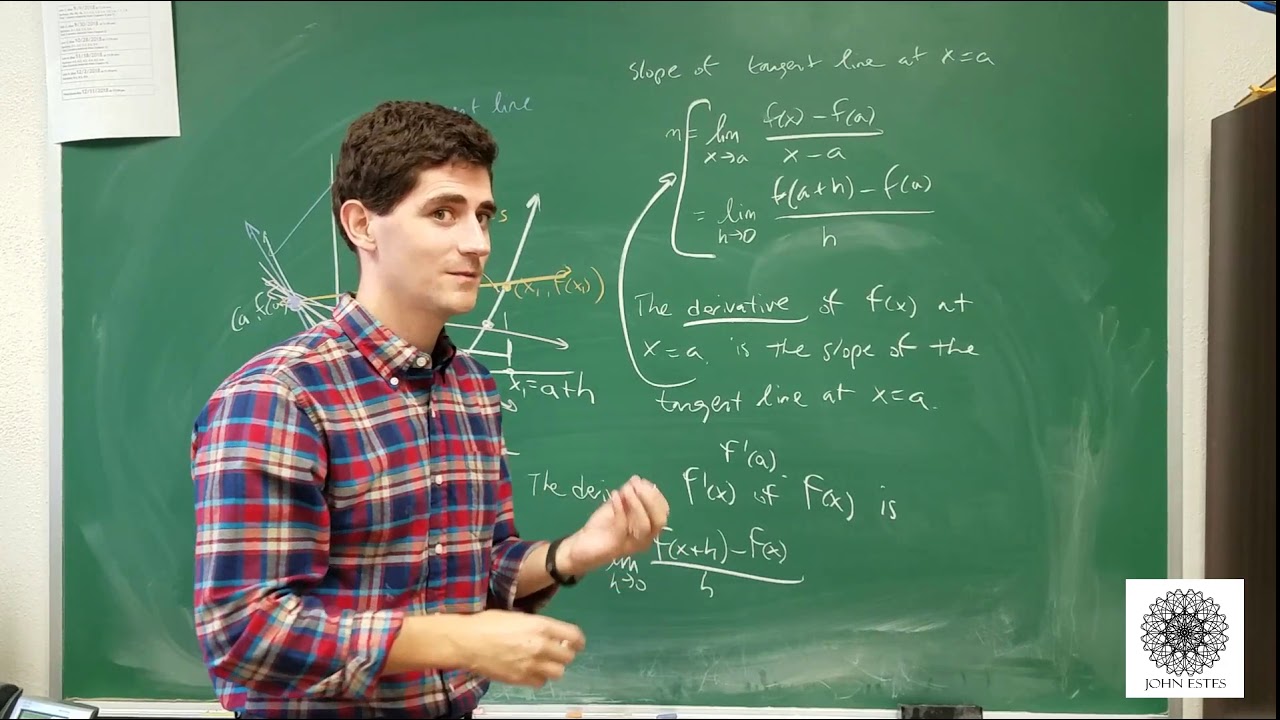 slope of tangent line at x=a
m = lim x→a f(x) - f(a) / x - a
= lim h→0 f(a+h) - f(a) / h
line
s
(x₁, f(x₁))
(a, f(a
x₁=a+h
The derivative of f(x) at
x=a is the slope of the
tangent line at x=a.
f'(a)
The f'(x) of f(x) is
h→0 f(x+h) - f(x) / h
JOHN ESTES